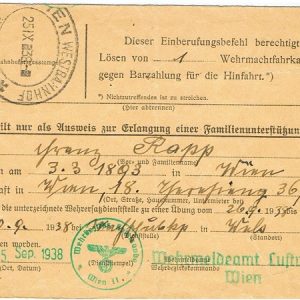 WIEN WESTBAHNHOF
23 IX
Dieser Einberufungsbefehl berechtigt
Lösen von 1 Wehrmachtfahrka
gegen Barzahlung für die Hinfahrt.*)
*) Nichtzutreffendes ist zu streichen.
(Hier abtrennen)
ilt nur als Ausweis zur Erlangung einer Familienunterstützun
Franz Rapp
(Vor- und Familienname)
am 3.3 1893 in Wien
aft in Wien, 18.
(Ort, Straße, Hausnummer, Untermieter bei)
die unterzeichnete Wehrersatzdienststelle zu einer Übung vom 26.9.1938
.9. 1938 bei Wels
(Standort)
5. Sep. 1938
(Dienststempel)
Wien II
Wehrmeldeamt Luftw
Wien
Wehrbezirkskommando